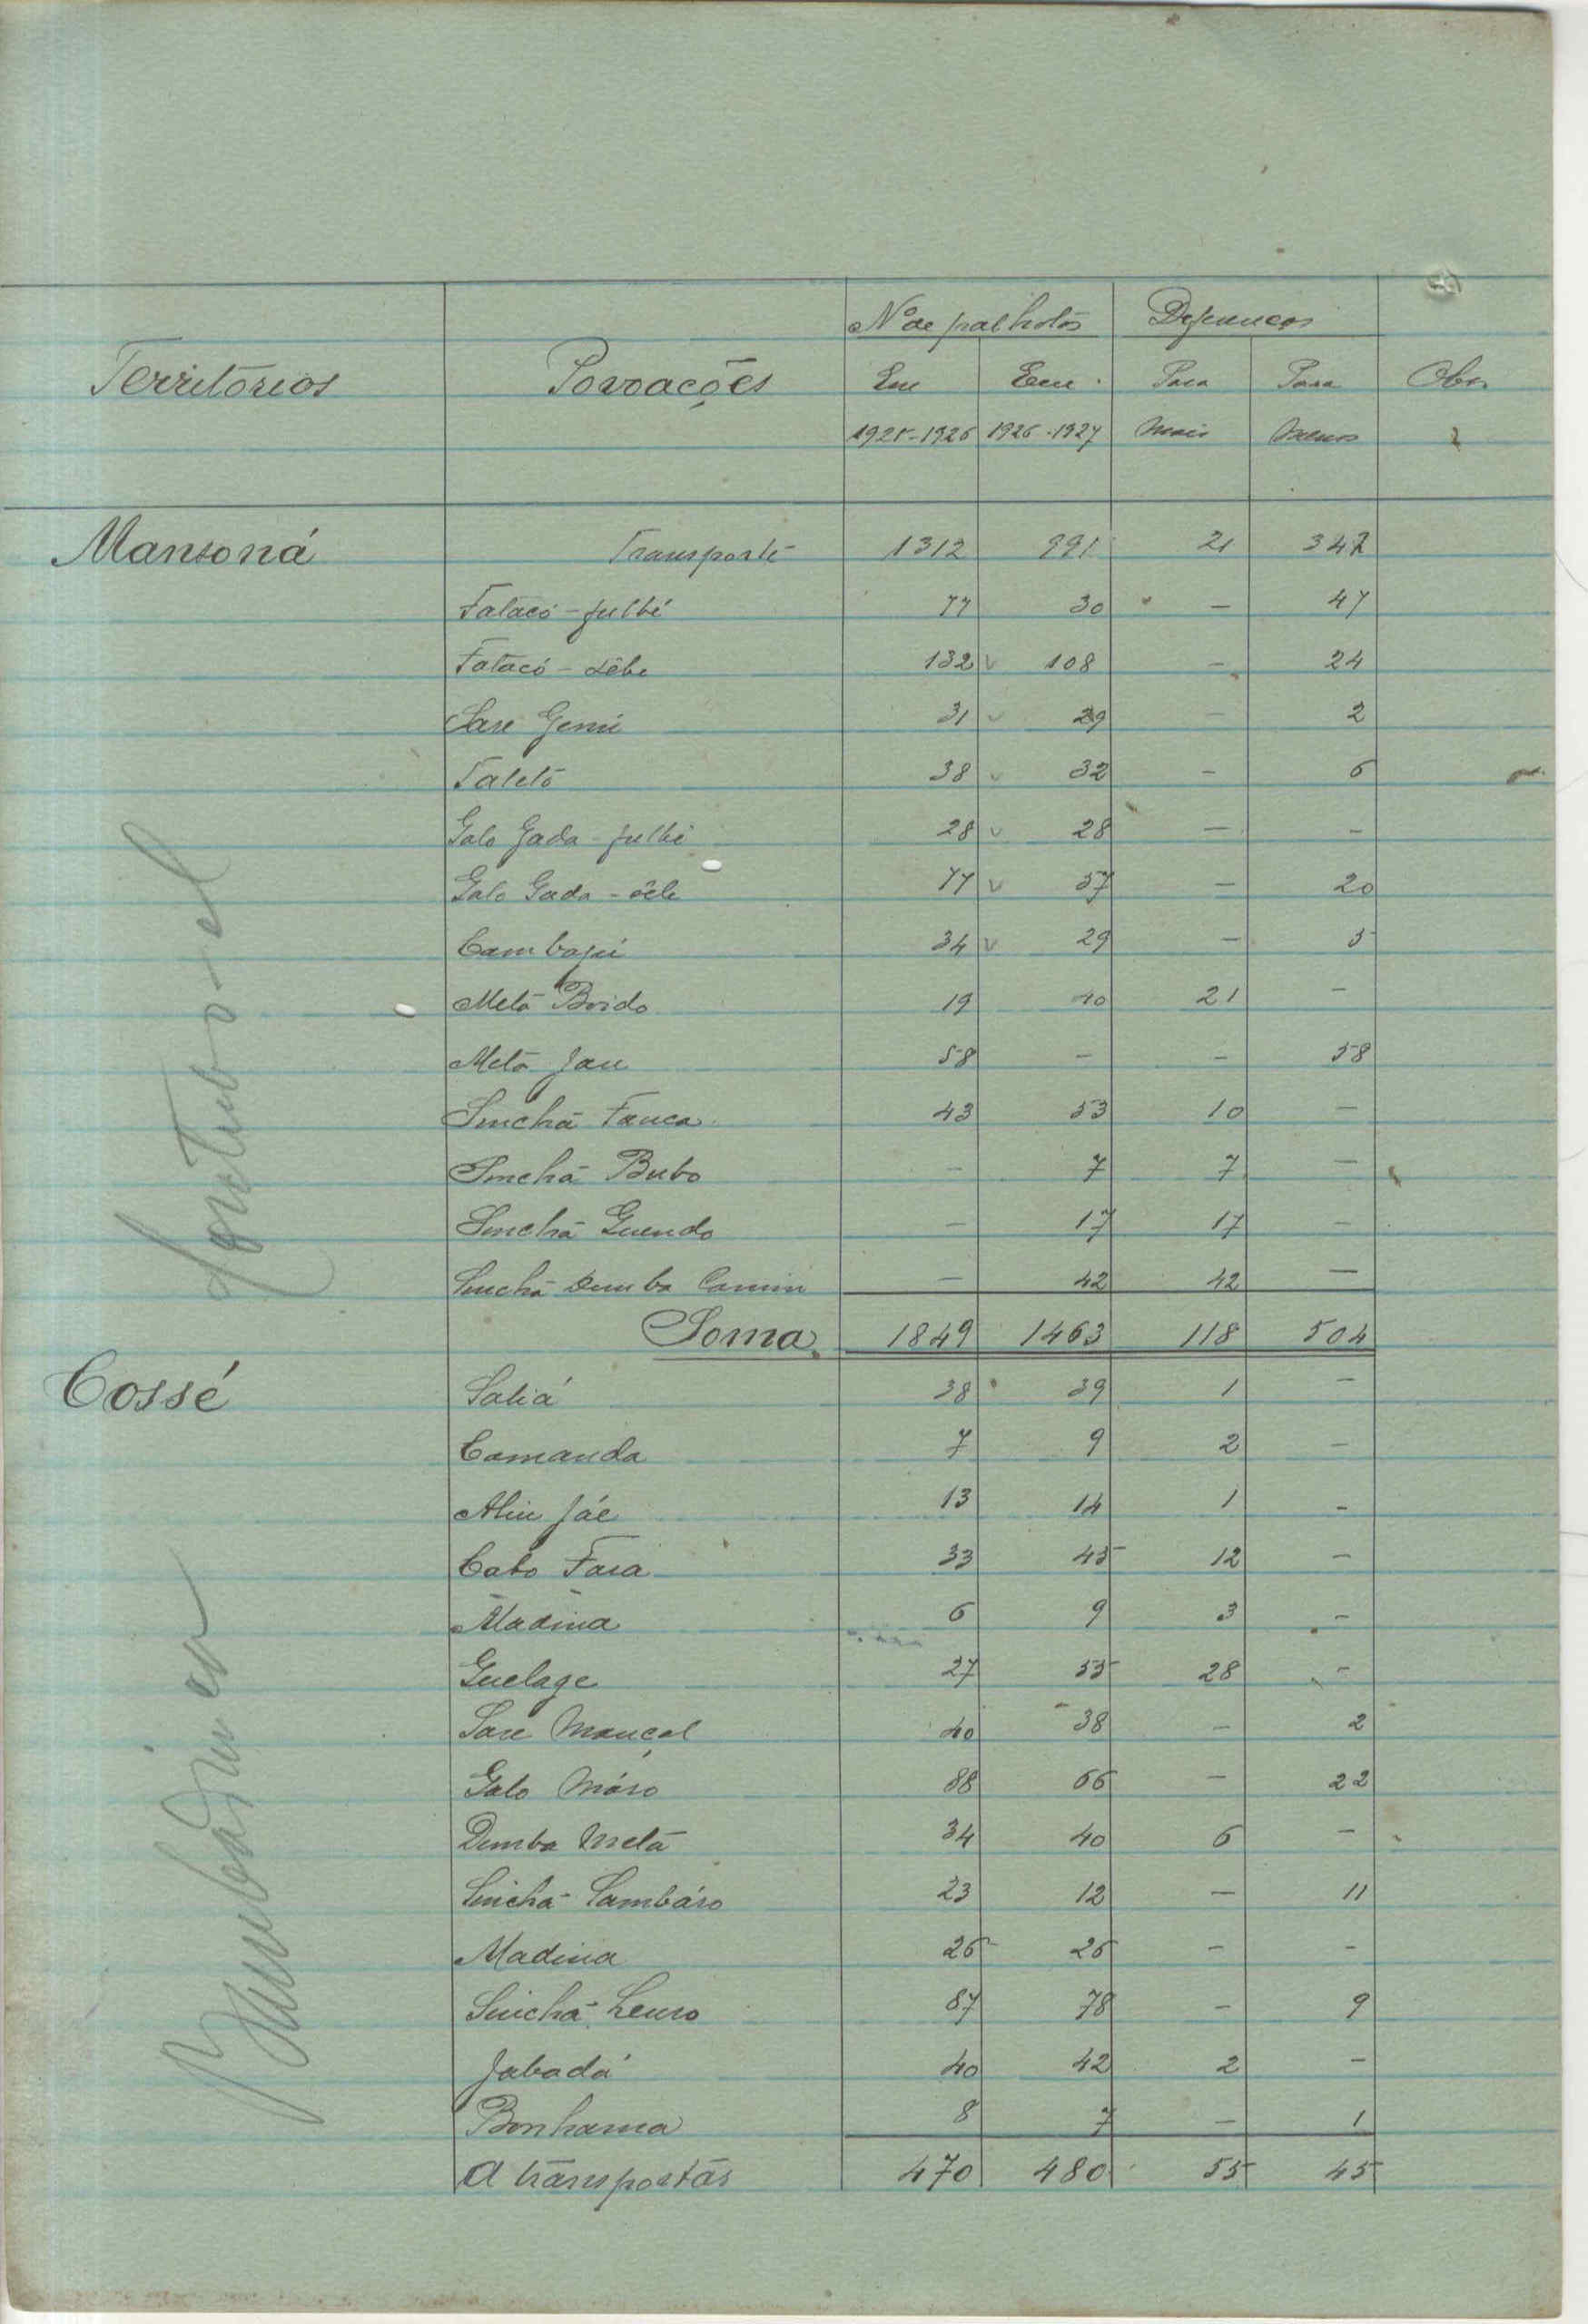 Nº de palhotas Diferenças
Territórios Povoações Em Em Para Para Obs.
1925-1926 1926-1927 Mais Menos
Mansoná Transporte 1312 991 21 342
Fatacó - fulbé 77 30 — 47
Fatacó - dêbe 132 108 — 24
Sare Geniè 31 29 — 2
Tatetó 38 32 — 6
Galo Gada - fulbé 28 28 — —
Galo Gada - 77 57 — 20
Cambajú 34 29 — 5
Metá Boido 19 40 21 —
Metá Jau 58 — — 58
Sinchá Fanca 43 53 10 —
Sinchá Bubo — 7 7 —
Sinchá Guendo — 17 17 —
Sinchá Demba Camim — 42 42 —
Soma 1849 1463 118 504
Cossé Saliá 38 39 1 —
Camanda 7 9 2 —
Aliu Jáe 13 14 1 —
Cabo Fara 33 45 12 —
Madina 6 9 3 —
Guelage 27 55 28 —
Sare Mançal 40 38 — 2
Galo Máro 88 66 — 22
Demba Metá 34 40 6 —
Sinchá Sambáro 23 12 — 11
Madina 26 26 — —
Sinchá Leuro 87 78 — 9
Jabadá 40 42 2 —
Bonhama 8 7 — 1
A transportar 470 480 55 45
Sontubo-el